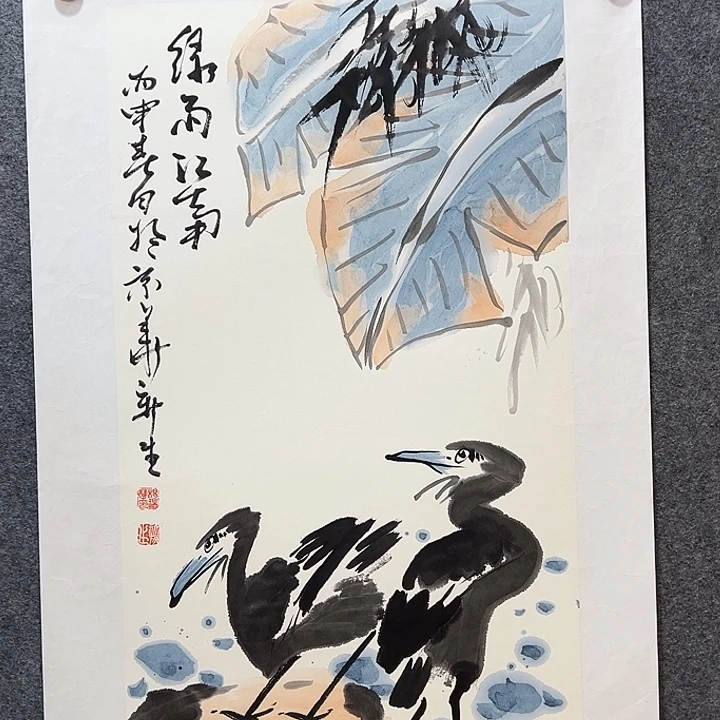 绿雨江南
丙申春日於京华新生